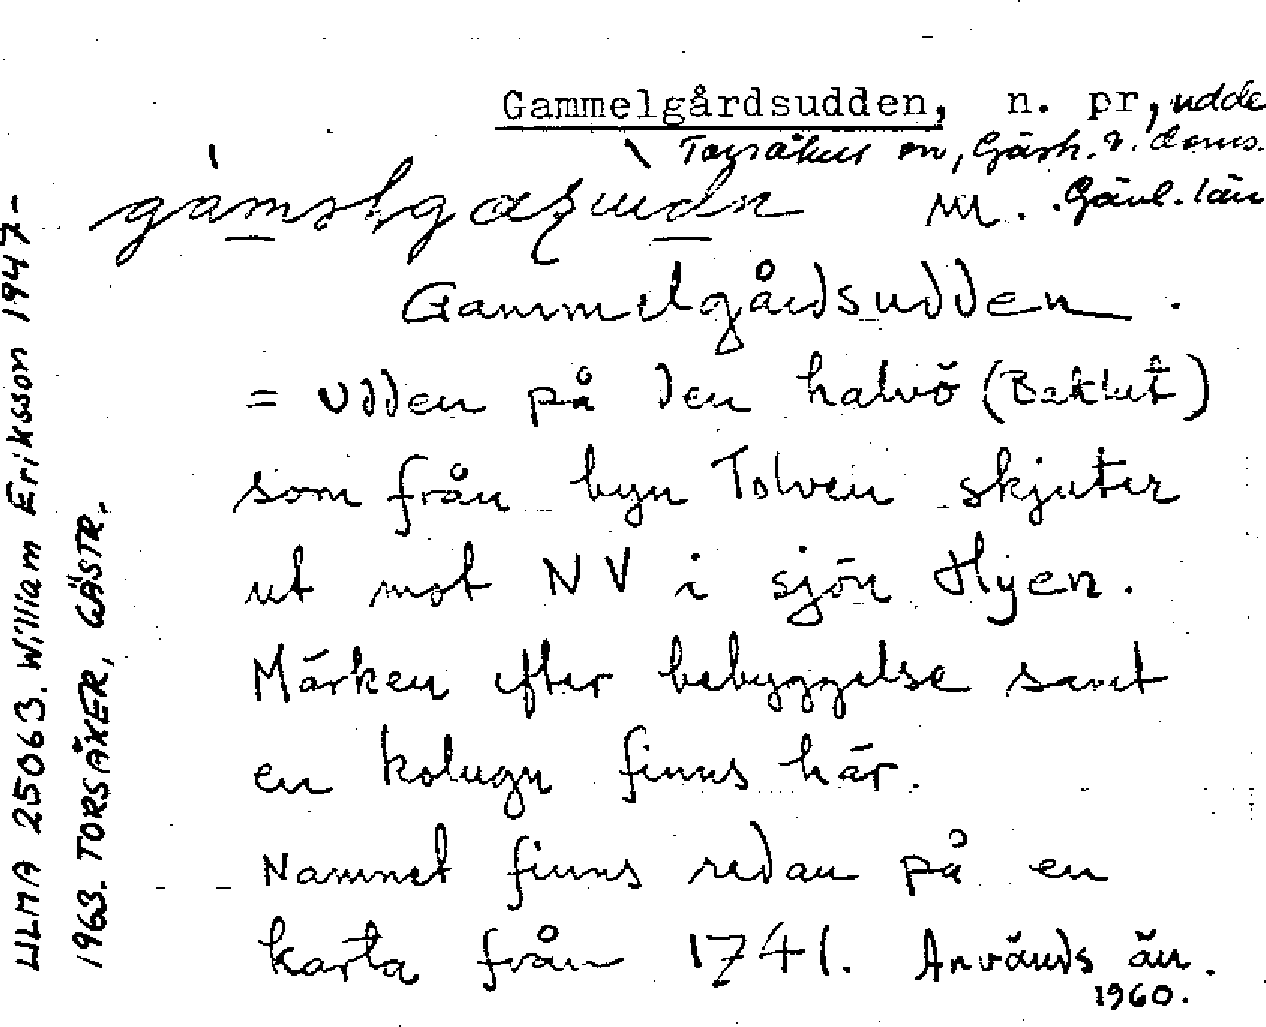 Gammelgårdsudden, n. pr, udde
Torsåker sn, Gästr. ö. doms.
m. Gävl. län
Gammelgårdsudden.
= udden på den halvö (Beklut)
som från byn Tolven skjuter
ut mot NV i sjön Hyen.
Märken efter bebyggelse samt
en kolugn finns här.
Namnet finns redan på en
karta från 1741. Används än.
1960.
ULMA 25063. William Eriksson 1947-
1963. TORSÅKER, GÄSTR.